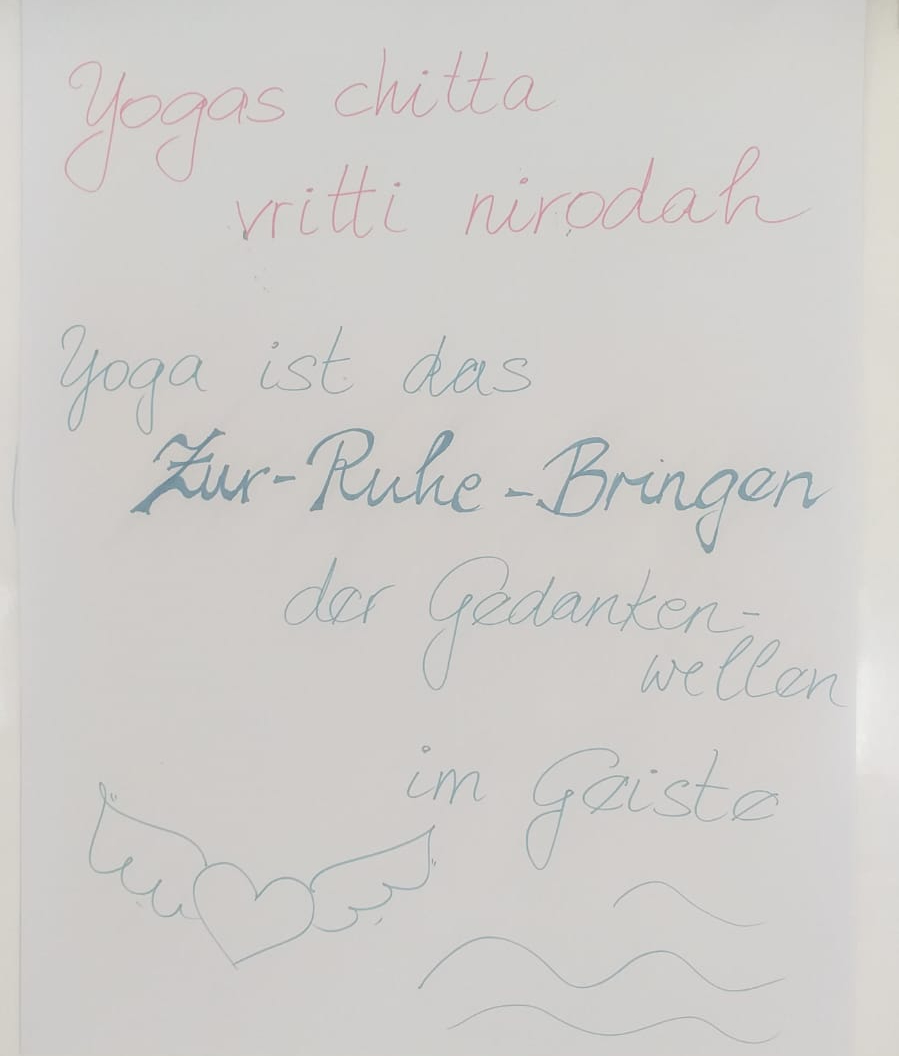 Yogas chitta
vritti nirodah
Yoga ist das
Zur-Ruhe-Bringen
der Gedanken-
wellen
im Geiste